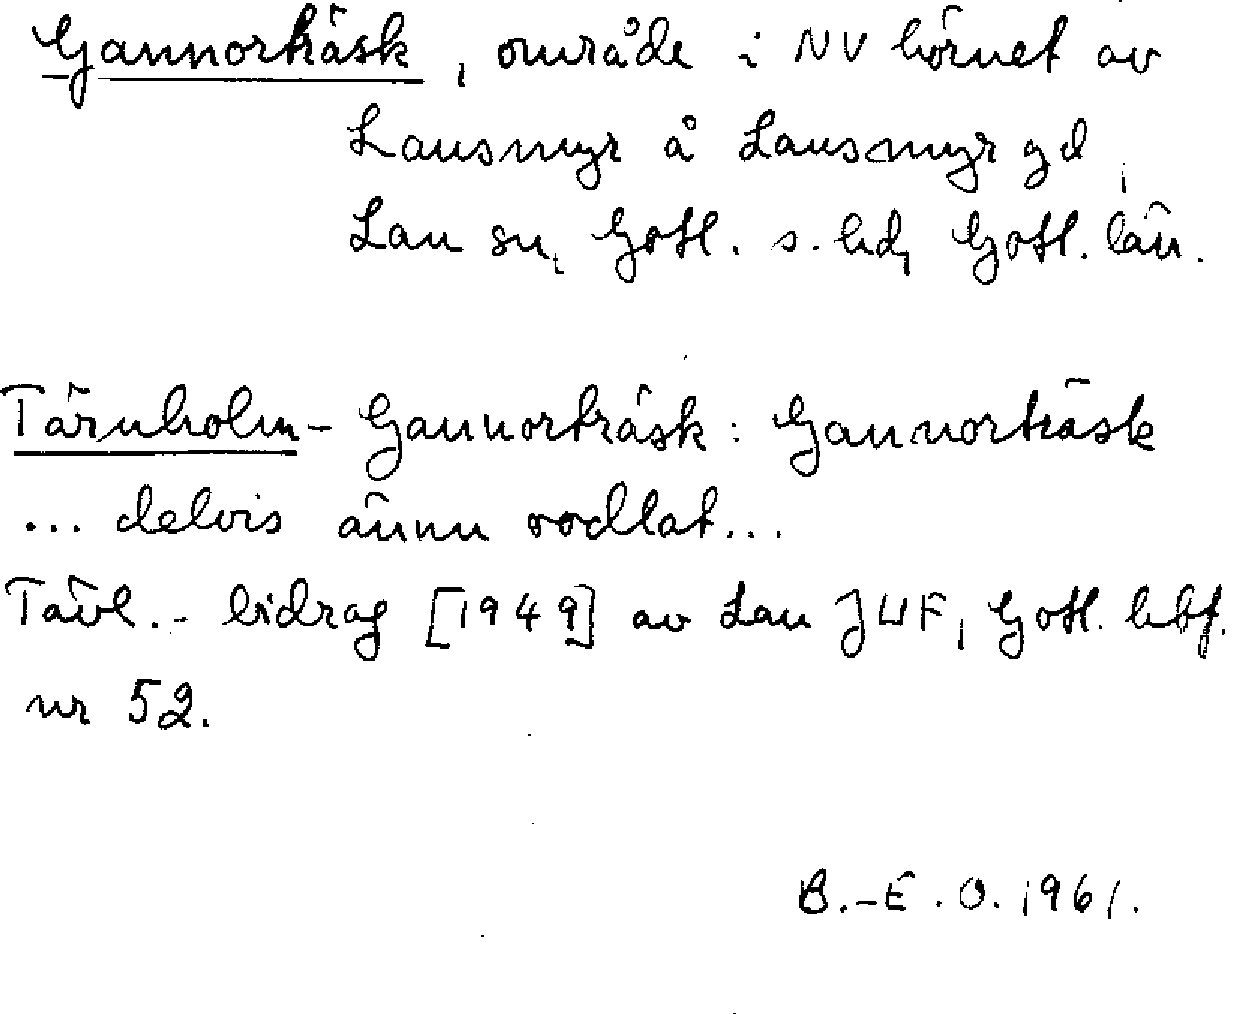 Gannorträsk, område i NV hörnet av
Lausmyr å Lausmyr gd,
Lau sn, Gotl. s. hd, Gotl. län.
Tärnholm - Gannorträsk : Gannorträsk
... delvis ännu oodlat...
Tävl.- bidrag [1949] av Lau JUF, Gotl. lbf.
nr 52.
B.-E. O. 1961.